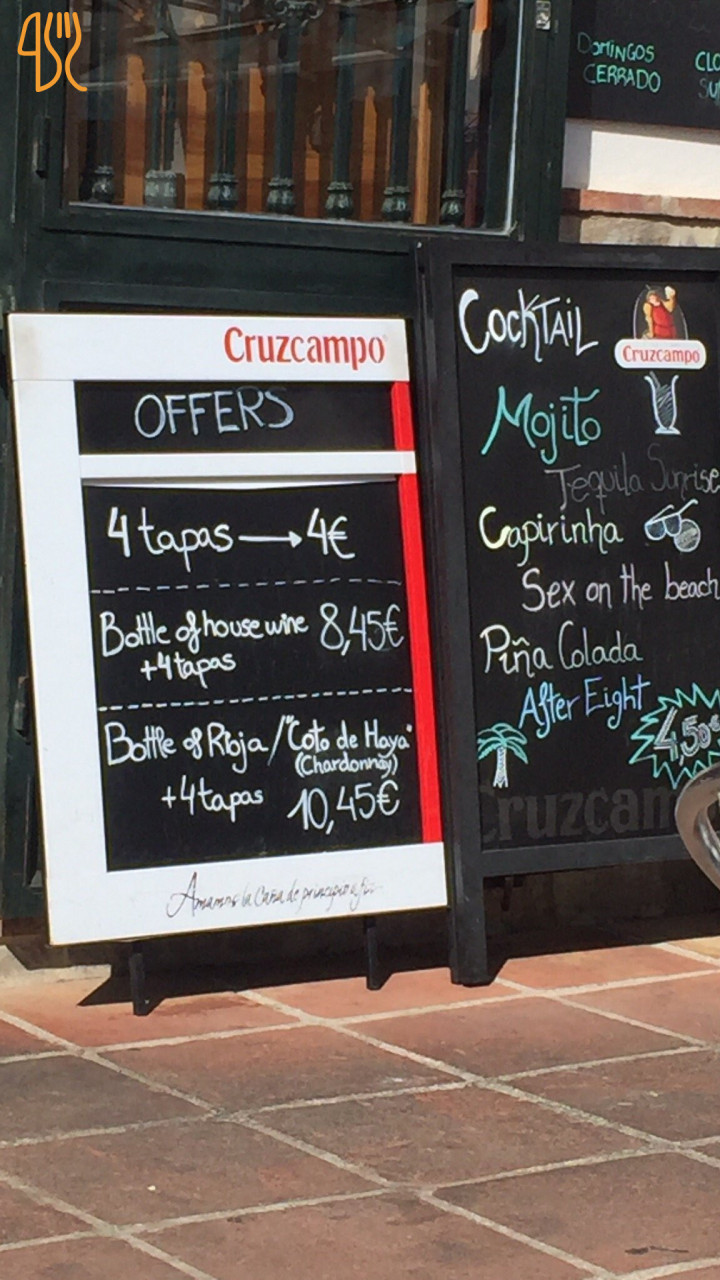 DOMINGOS
CERRADO
CLO
SU
Cruzcampo
OFFERS
4 tapas → 4€
Bottle of house wine 8,45€
+4 tapas
Bottle of Rioja / "Coto de Haya"
(Chardonnay)
+4 tapas 10,45€
Amamos la Caña de principio a fin
COCKTAIL
Cruzcampo
Mojito
Tequila Sunrise
Capirinha
Sex on the beach
Piña Colada
After Eight
4,50€
Cruzcam